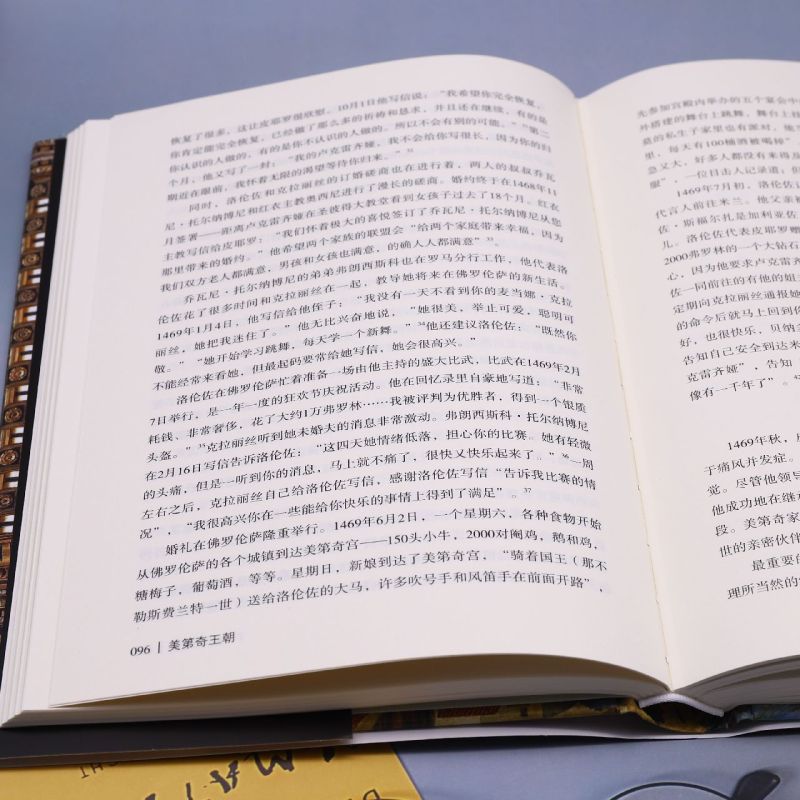 恢复了很多，这让皮耶罗很欣慰。10月1日他写信说：“我希望你完全恢复，
你肯定能完全恢复，已经做了那么多的祈祷和恳求，并且还在继续，有的是
你认识的人做的，有的是你不认识的人做的。所以不会有别的可能。”第二
个月，他又写了一封：“我的卢克雷齐娅，我不会给你写很长，因为你的归
期近在眼前，我怀着无限的渴望等待你归来。”
同时，洛伦佐和克拉丽丝的订婚磋商也在进行着，两人的叔叔乔瓦
尼·托尔纳博尼和红衣主教奥西尼进行了漫长的磋商。婚约终于在1468年11
月签署——距离卢克雷齐娅在圣彼得大教堂看到女孩过去了18个月。红衣
主教写信给皮耶罗：“我们怀着极大的喜悦签订了乔瓦尼·托尔纳博尼从您
那里带来的婚约。”他希望两个家族的联盟会“给两个家庭带来幸福，因为
我们双方老人都满意，男孩和女孩也满意，的确人人都满意”33。
乔瓦尼·托尔纳博尼的弟弟弗朗西斯科也在罗马分行工作，他代表洛
伦佐花了很多时间和克拉丽丝在一起，教导她将来在佛罗伦萨的新生活。
1469年1月4日，他写信给他侄子：“我没有一天不看到你的麦当娜·克拉
丽丝，她把我迷住了。”他无比兴奋地说，“她很美，举止可爱，聪明可
敬。”“她开始学习跳舞，每天学一个新舞。”34他还建议洛伦佐：“既然你
不能经常来看她，但最起码要常给她写信，她会很高兴。”
洛伦佐在佛罗伦萨忙着准备一场由他主持的盛大比武，比武在1469年2月
7日举行，是一年一度的狂欢节庆祝活动。他在回忆录里自豪地写道：“非常
耗钱、非常奢侈，花了大约1万弗罗林……我被评判为优胜者，得到一个银质
头盔。”35克拉丽丝听到她未婚夫的消息非常激动。弗朗西斯科·托尔纳博尼
在2月16日写信告诉洛伦佐：“这四天她情绪低落，担心你的比赛。她有轻微
的头痛，但是一听到你的消息，马上就不痛了，很快又快乐起来了。”36一周
左右之后，克拉丽丝自己给洛伦佐写信，感谢洛伦佐写信“告诉我比赛的情
况”，“我很高兴你在一些能给你快乐的事情上得到了满足”。37
婚礼在佛罗伦萨隆重举行。1469年6月2日，一个星期六，各种食物开始
从佛罗伦萨的各个城镇到达美第奇宫——150头小牛，2000对阉鸡，鹅和鸡，
糖梅子，葡萄酒，等等。星期日，新娘到达了美第奇宫，“骑着国王（那不
勒斯费兰特一世）送给洛伦佐的大马，许多吹号手和风笛手在前面开路”，
096 | 美第奇王朝
先参加宫殿内举办的五个宴会中
外搭建的舞台上跳舞，舞台上挂
莫的私生子家里也有派对，地下
里，每天有100桶酒被喝掉”
急又大，好多人都没有来得及
服”，一位目击人记录道，但
1469年7月初，洛伦佐
代言人前往米兰。他父亲
佐·斯福尔扎是加利亚佐
儿。洛伦佐代表皮耶罗赠
2000弗罗林的一个大钻石
心，因为他要求卢克雷齐
佐一同前往的有他的姐
定期向克拉丽丝通报她
的命令后就马上回到你
好，也很快乐，贝纳
告知自己安全到达米
克雷齐娅”，告知
像有一千年了”。
1469年秋，
干痛风并发症。
觉。尽管他领导
他成功地在继
段。美第奇家
世的亲密伙伴
最重要的
理所当然的